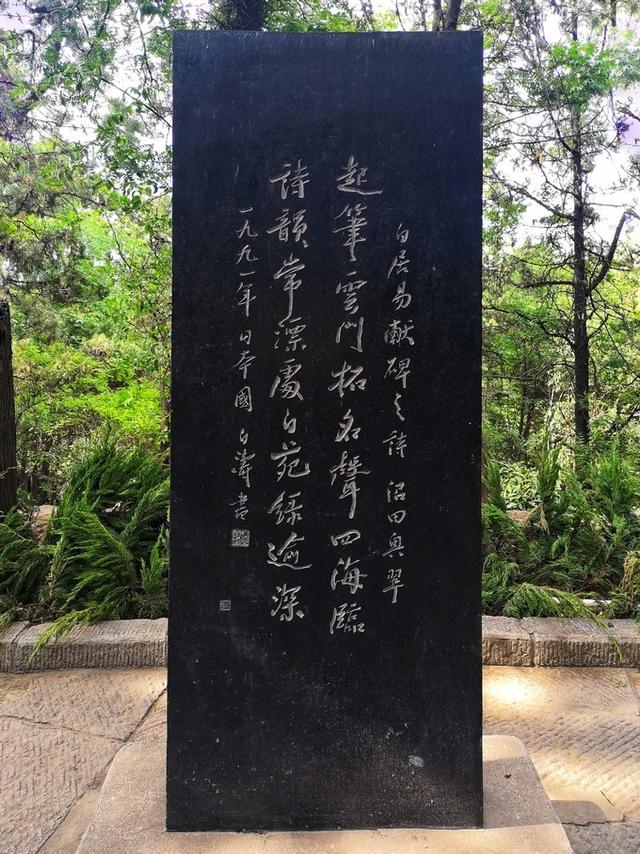 白居易献碑之詩 沼田與翠
起筆雲門拓名聲四海臨
詩韻常漂處白苑緑逾深
一九九一年 日本國 白濤 書